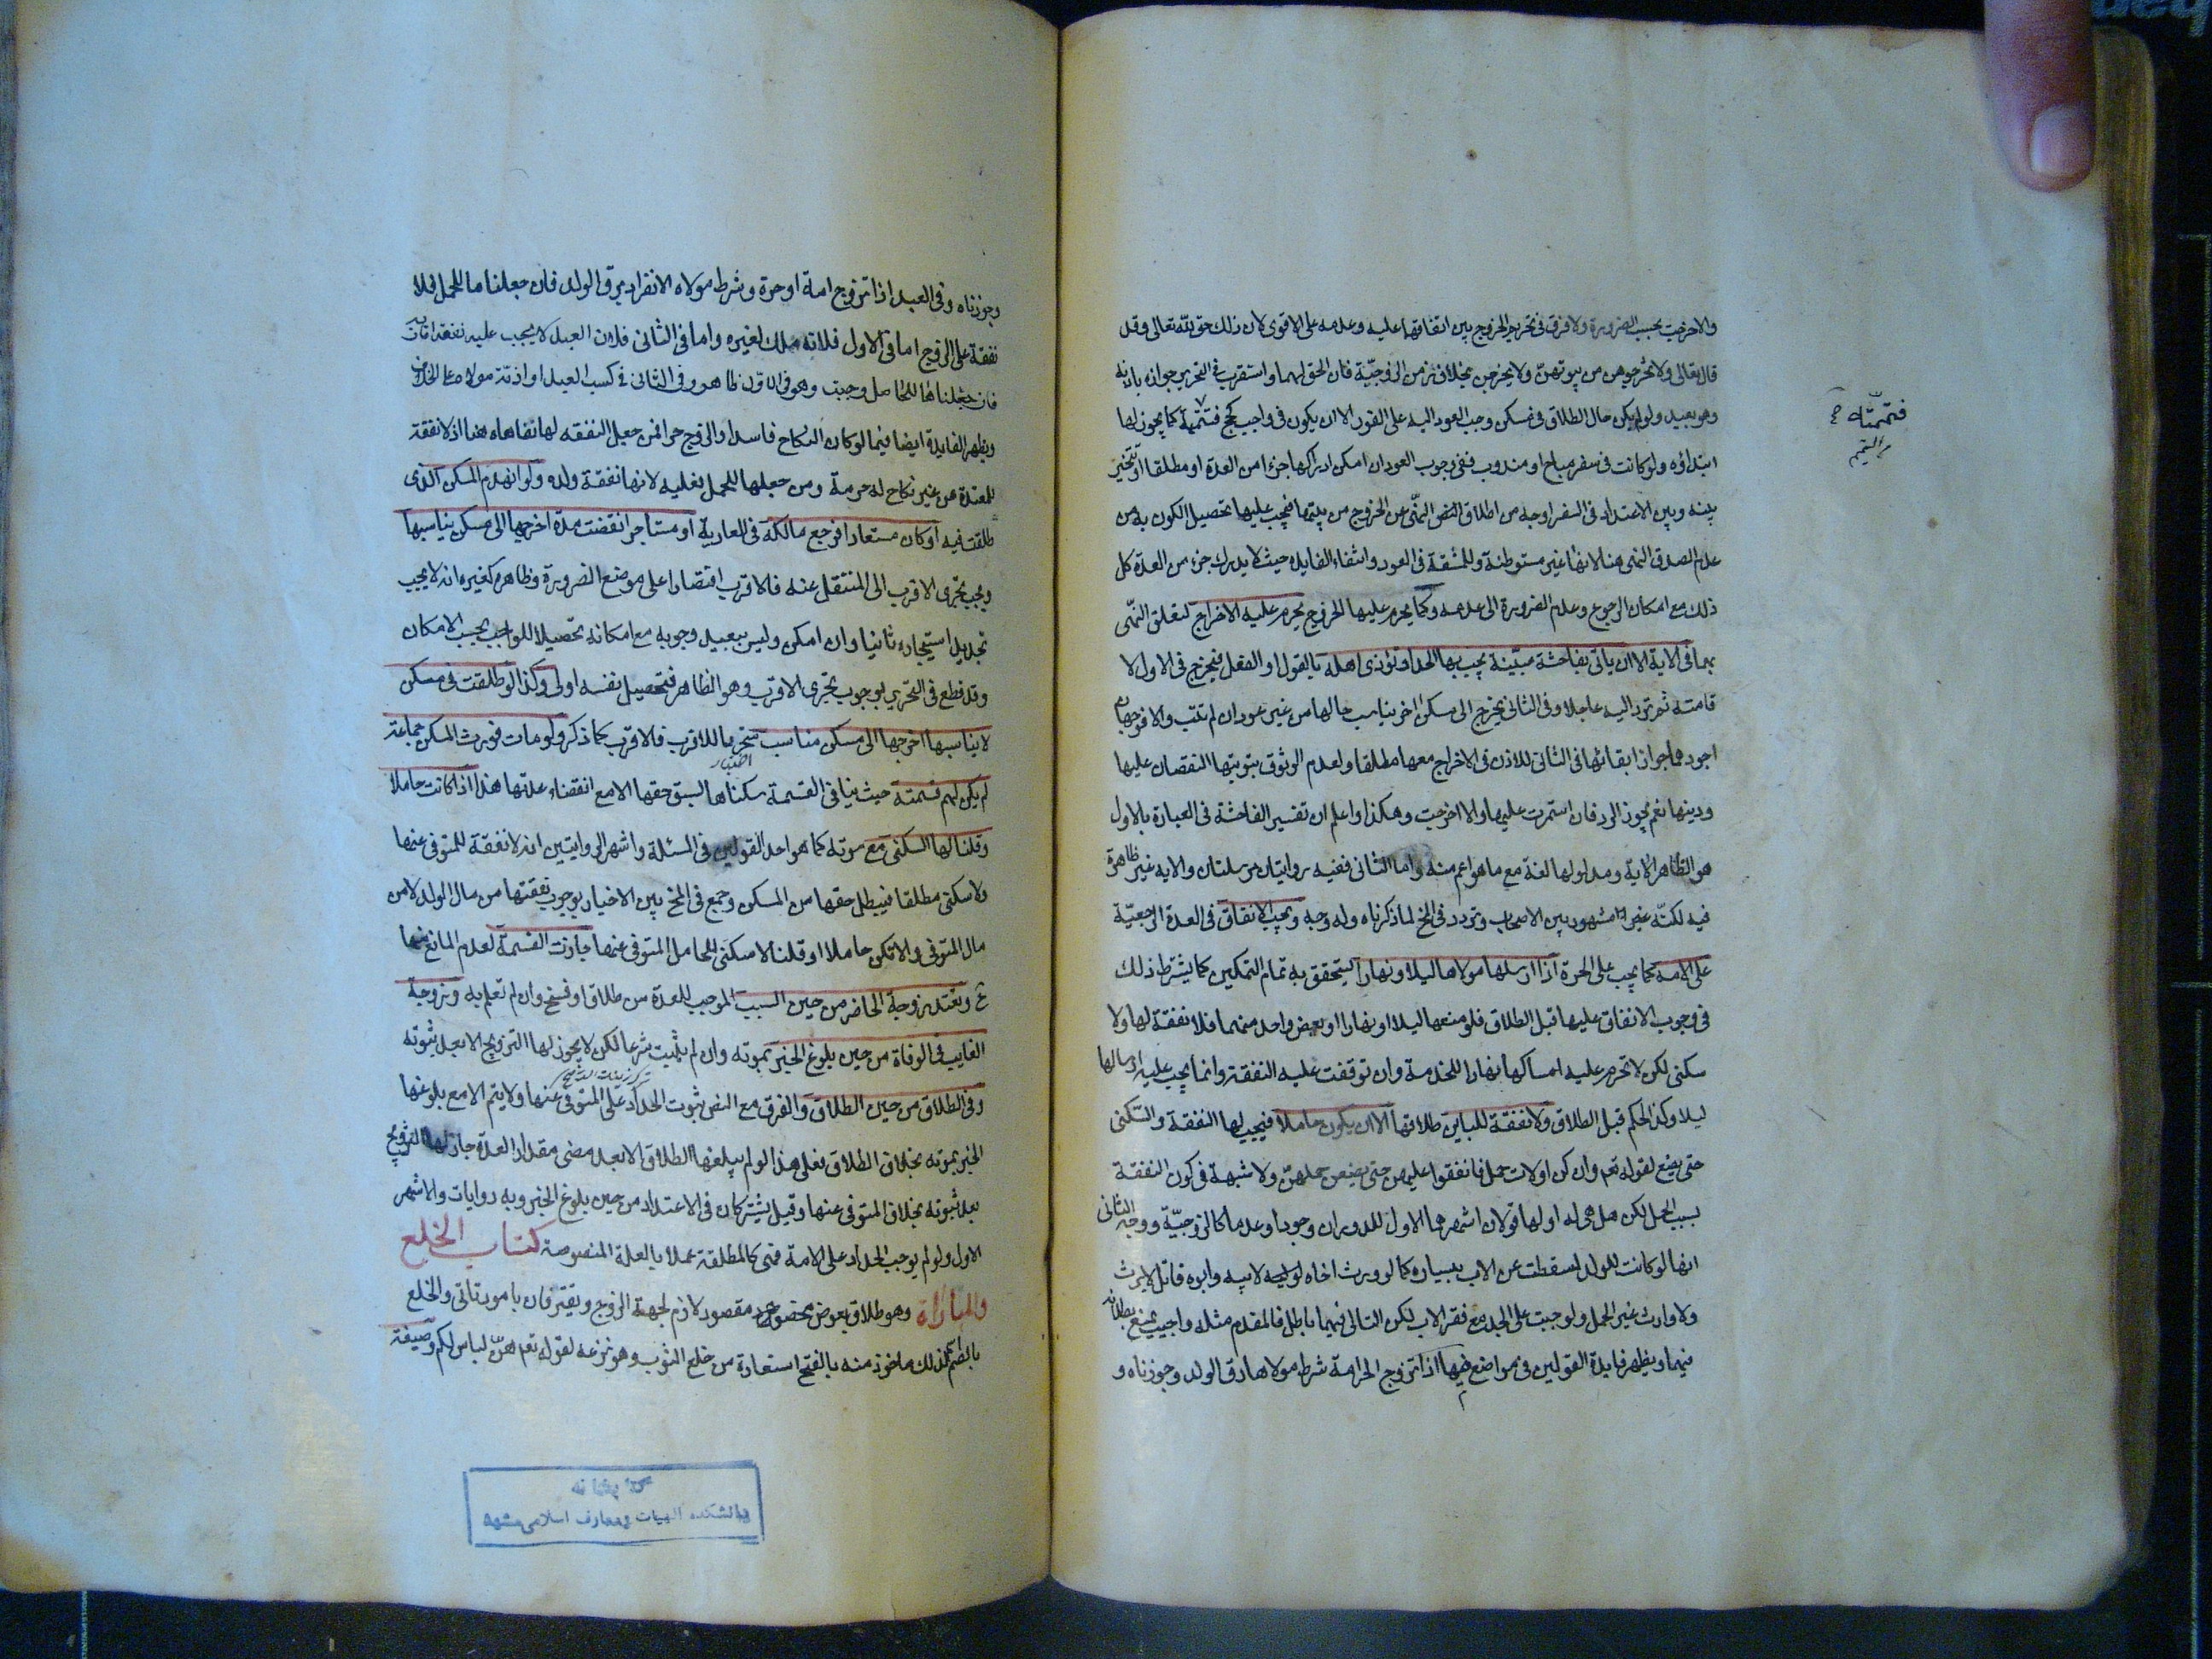 والا خرجت بحسب الضرورة ولا فرق فى تحريم الخروج بين اتفاقهما عليه وعدمه على الاقوى لان ذلك حق لله تعالى وقد
قال تعالى ولا تخرجوهن من بيوتهن ولا يخرجن بخلاف زمن الزوجية فان الحق لهما واستقرب فى التحرير جوازه باذنه
وهو بعيد ولو لم يكن حال الطلاق فى مسكن وجب العود اليه على الفور الا ان يكون فى واجب كحج فتتمه كما يجوز لها
ابتداؤه ولو كانت فى سفر مباح او مندوب ففى وجوب العود ان امكن ادراكها جزءا من العدة او مطلقا او تتخير
بينه وبين الاعتداد فى السفر اوجه من اطلاق النص النهى عن الخروج من بيتها فيجب عليها تحصيل الكون به ومن
عدم صدق النهى هنا لانها غير مستوطنة وللمشقة فى العود وانتفاء الفايدة حيث لا يدرك جزء من العدة كل
ذلك مع امكان الرجوع وعدم الضرورة الى عدمه وكما يحرم عليها الخروج يحرم عليه الاخراج لتعلق النهى
بهما فى الاية الا ان ياتى بفاحشة مبينة يجب بها الحد او تؤذى اهله بالقول او الفعل فيخرج فى الاول لا
قامته ثم ترد اليه عاجلا وفى الثانى يخرج الى مسكن اخر يناسب حالها من غير عود ان لم تتب والا فوجهان
اجودهما جواز ابقائها فى الثانى للاذن فى الاخراج معها مطلقا ولعدم الوثوق بتوبتها لنقصان عقلها
ودينها نعم يجوز الرد فان استمرت عليها والا اخرجت وهكذا واعلم ان تفسير الفاحشة فى العبارة بالاول
هو الظاهر الاية ومدلولها لغة مع ما هو اعم منه واما الثانى ففيه روايتان مرسلتان والاية غير ظاهرة
فيه لكنه هو المشهور بين الاصحاب وتردد فى المخ لما ذكرناه وله وجه ويجب الانفاق فى العدة الرجعية
على الامة كما يجب على الحرة اذا ارسلها مولاها ليلا ونهارا ليتحقق به تمام التمكين كما يشترط ذلك
فى وجوب الانفاق عليها قبل الطلاق فلو منعها ليلا او نهارا او بعض واحد منهما فلا نفقة لها ولا
سكنى لكن لا تحرم عليه امساكها نهارا للخدمة وان توقفت عليه النفقة وانما يجب عليه ارسالها
ليلا وكذا الحكم قبل الطلاق ولا نفقة للباين طلاقها الا ان يكون حاملا فيجب لها النفقة والسكنى
حتى يضع لقوله تعم وان كن اولات حمل فانفقوا عليهن حتى يضعن حملهن ولا شبهة فى كون النفقة
بسبب الحمل لكن هل هى له او لها قولان اشهرهما الاول للدوران وجودا وعدما كالزوجية ووجه الثانى
انها لو كانت للولد لسقطت عن الاب بيساره كما لو ورث اخاه لابيه وابوه قاتل لا يرث
ولا وارث غير الحمل ولوجبت على الجد مع فقر الاب لكن التالى فيهما باطل فالمقدم مثله واجيب بمنع بطلانه
فيهما ويظهر فايدة القولين فى مواضع منها اذا تزوج الحر امة شرط مولاها رق الولد وجوزناه و
فتتممته
وجوزناه وفى العبد اذا تزوج امة او حرة وشرط مولاه الانفراد برق الولد فان جعلناها للحمل فلا
نفقة على الزوج اما فى الاول فلانه ملك لغيره واما فى الثانى فلان العبد لا يجب عليه نفقة اقاربه
فان جعلناها للحامل وجبت وهو فى الاول ظاهر وفى الثانى فى كسب العبد او ذمة مولاه على الخلاف
ويظهر الفايدة ايضا فيما لو كان النكاح فاسدا والزوج حرا فمن جعل النفقه لها نفاها هنا اذ لا نفقة
للمعتدة عن غير نكاح له حرمة ومن جعلها للحمل فعليه لانها نفقة ولده ولو انهدم المسكن الذى
طلقت فيه او كان مستعارا فرجع مالكه فى العارية او مستاجرا انقضت مدة اخرجها الى مسكن يناسبها
ويجب تحرى الاقرب الى المنتقل عنه فالاقرب اقتصارا على موضع الضرورة وظاهره كغيره انه لا يجب
تجديد استيجاره ثانيا وان امكن وليس ببعيد وجوبه مع امكانه تحصيلا للواجب بحسب الامكان
وقد قطع فى التحرير بوجوب تحرى الاقرب وهو الظاهر فتحصيل نفسه اولى وكذا لو طلقت فى مسكن
لا يناسبها اخرجها الى مسكن مناسب متحريا للاقرب فالاقرب كما ذكر ولو مات فورث المسكن جماعة
لم يكن لهم قسمته حيث ينافى القسمة سكناها لسبق حقها الا مع انقضاء عدتها هذا اذا كانت حاملا
وقلنا لها السكنى مع موته كما هو احد القولين فى المسئلة واشهر الروايتين انه لا نفقة للمتوفى عنها
ولا سكنى مطلقا فيبطل حقها من المسكن وجمع فى المخ بين الاخبار بوجوب نفقتها من مال الولد لا من
مال المتوفى والا تكن حاملا او قلنا لا سكنى للحامل المتوفى عنها جازت القسمة لعدم المانع منها
ح وتعتد زوجة الحاضر من حين السبب الموجب للعدة من طلاق او فسخ وان لم تعلم به وزوجة
الغايب فى الوفاة من حين بلوغ الخبر بموته وان لم يثبت شرعا لكن لا يجوز لها التزويج الا بعد ثبوته
وفى الطلاق من حين الطلاق والفرق مع النص ثبوت الحداد على المتوفى عنها ولا يتم الا مع بلوغها
الخبر بموته بخلاف الطلاق فعلى هذا لو لم يبلغها الطلاق الا بعد مضى مقدار العدة جاز لها التزويج
بعد ثبوته بخلاف المتوفى عنها وقيل يشتركان فى الاعتداد من حين بلوغ الخبر وبه روايات والاشهر
الاول ولو لم يوجب الحداد على الامة فهى كالمطلقة عملا بالعلة المنصوصة كتاب الخلع
والمباراة وهو طلاق بعوض مقصود لازم لجهة الزوج ويفترقان بامور تاتى والخلع
بالضم كذلك ماخوذ منه بالفتح استعارة من خلع الثوب وهو نزعه لقوله تعم هن لباس لكم وصيغة
كتابخانه
دانشكده الهيات ومعارف اسلامى مشهد